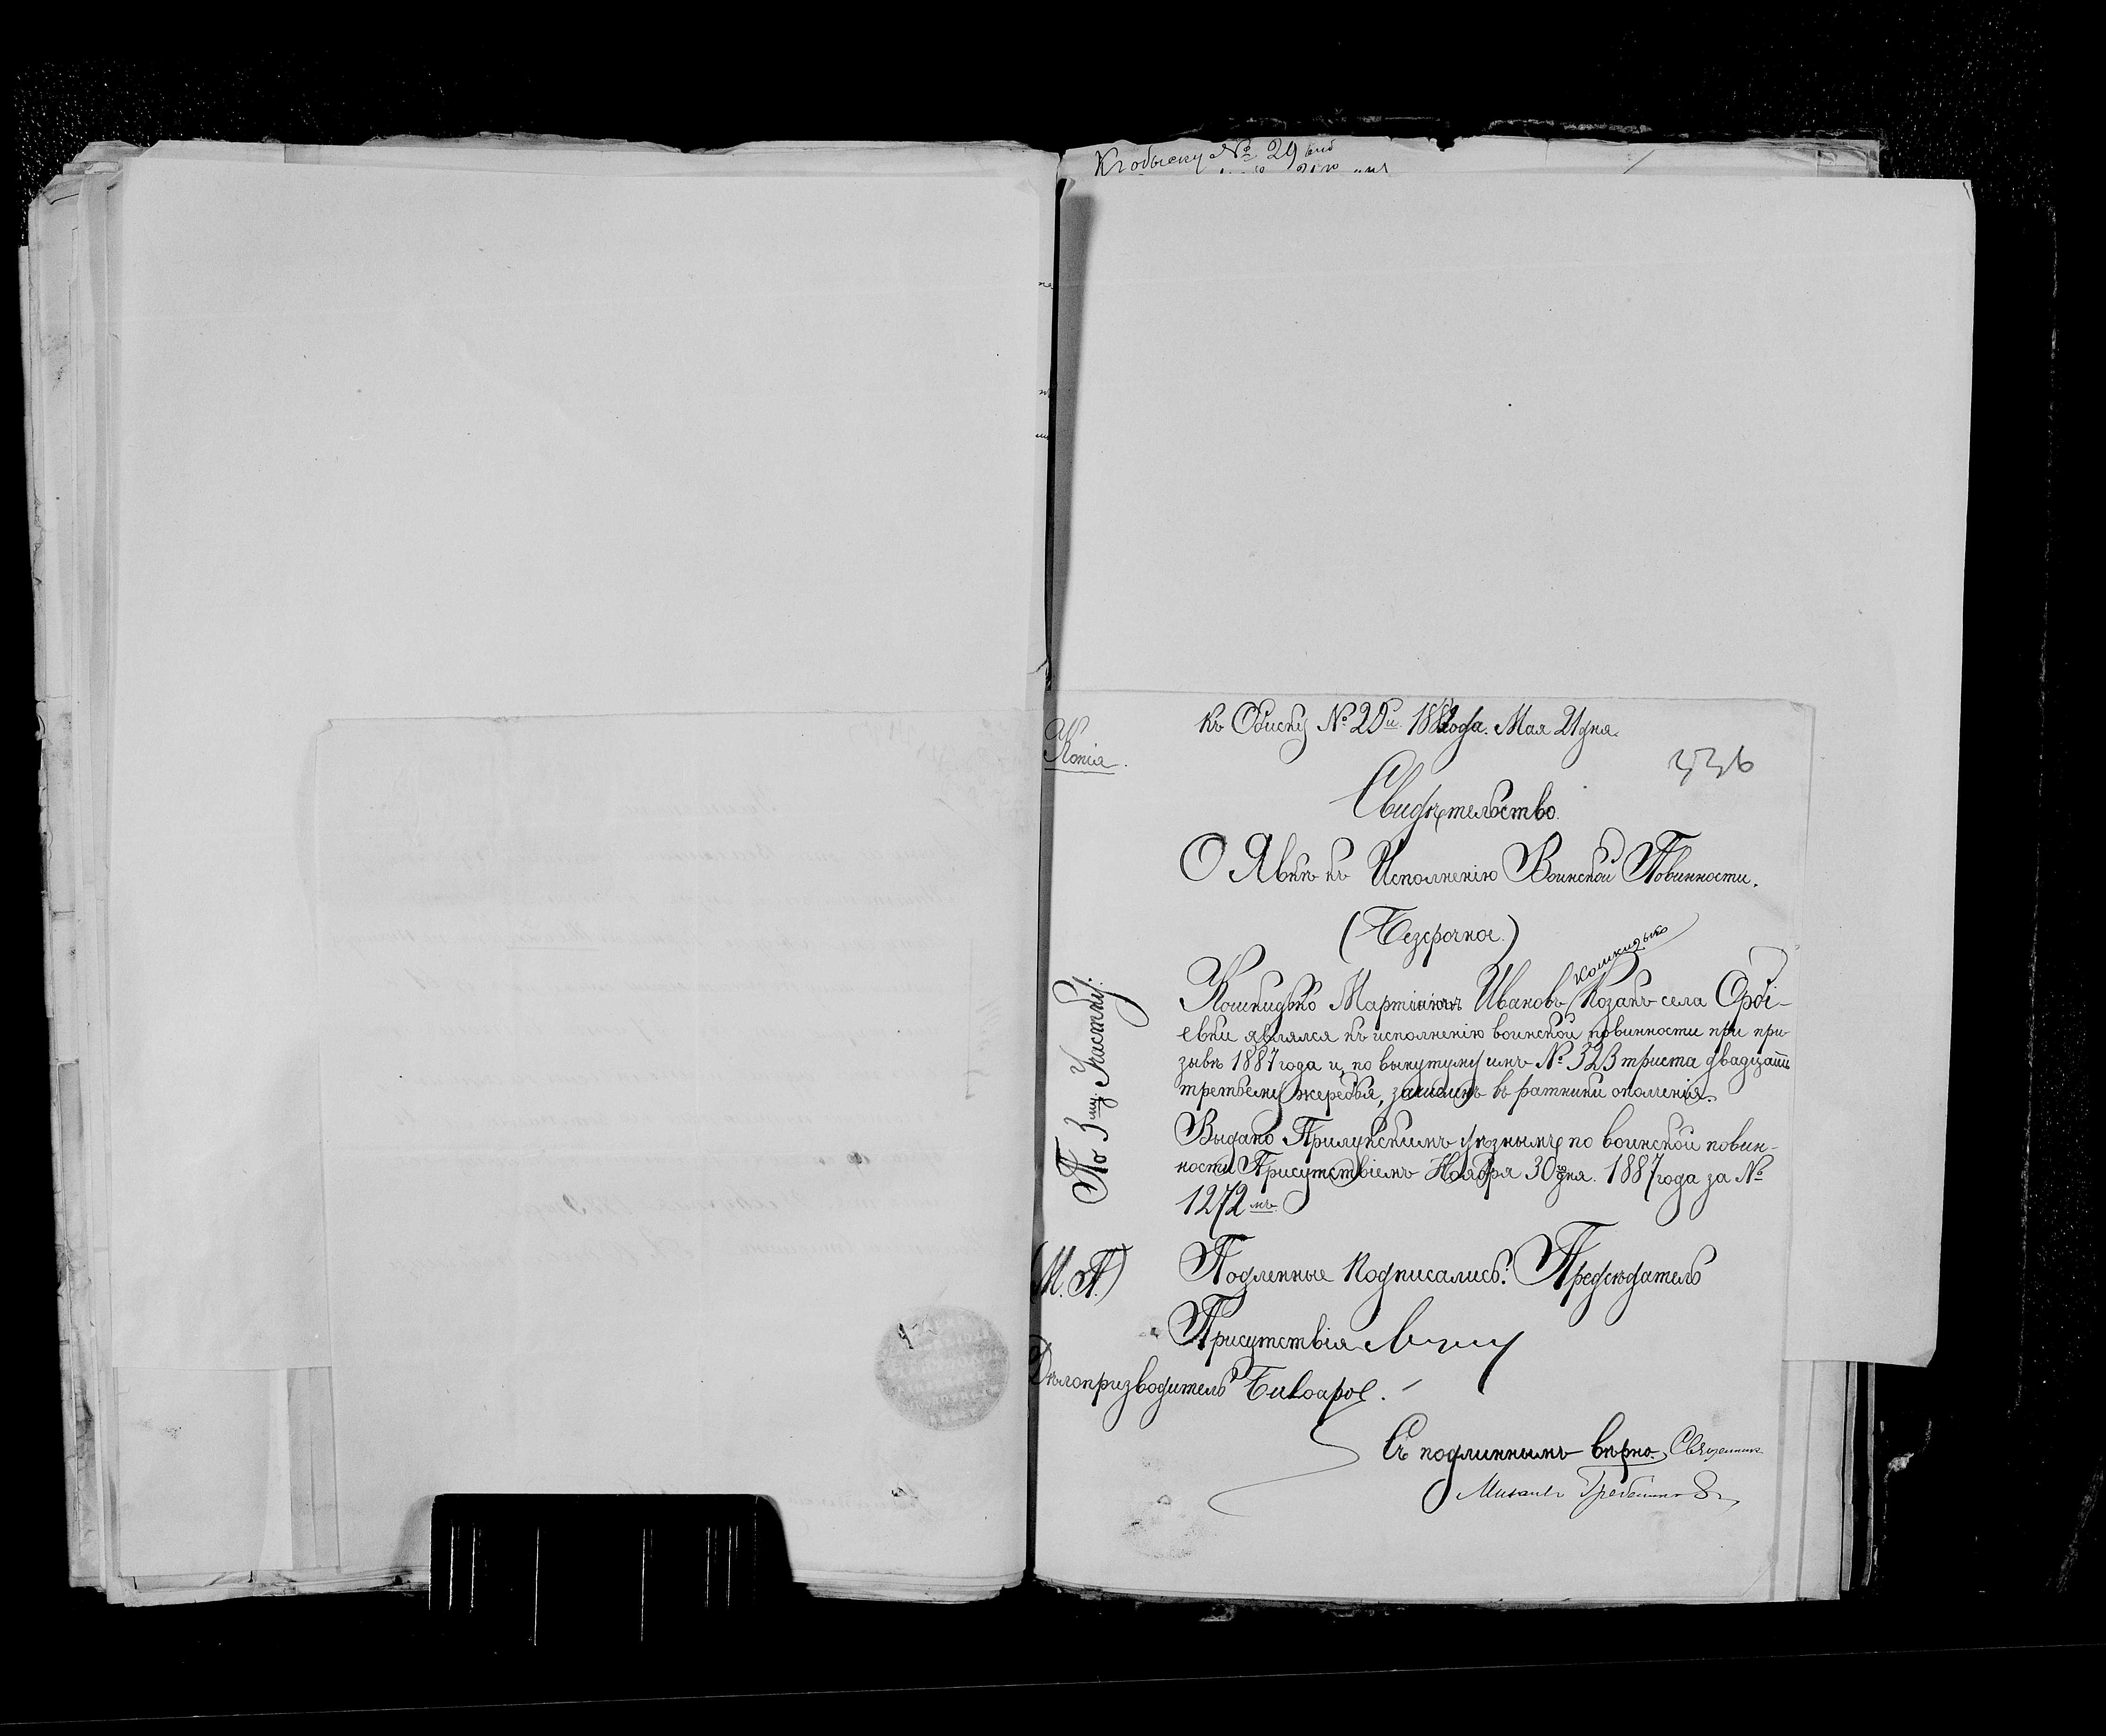 Къ обыску № 29
Къ Обиску № 29й 1889 года. Мая 21 дня.
Копія.
336
Свидѣтельство.
О Явкѣ къ Исполненію Воинской Повинности.
(Безсрочное.)
Кошкидько
Кошкидько Ивановъ Козакъ села
евки являлся къ исполненію воинской повинности при при-
зывѣ 1887 года и, по вынутуму имъ № 323 триста двадцать
третьему жеребья, зачисленъ въ ратники ополченія.
Выдано Прилукскимъ уѣзнымъ по воинской повин-
ности Присутствіемъ Ноября 30 дня. 1887 года за №
1272мъ
По 3му Участку.
(М. П.)
Подленные Подписались: Предсѣдатель
Присутствія
Дѣлопризводитель
Съ подлиннымъ вѣрно. Священникъ
Михаилъ